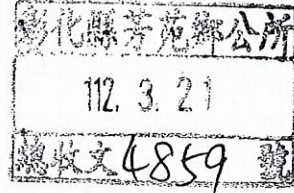 彰化縣芳苑鄉公所
112. 3. 21
總收文4859號